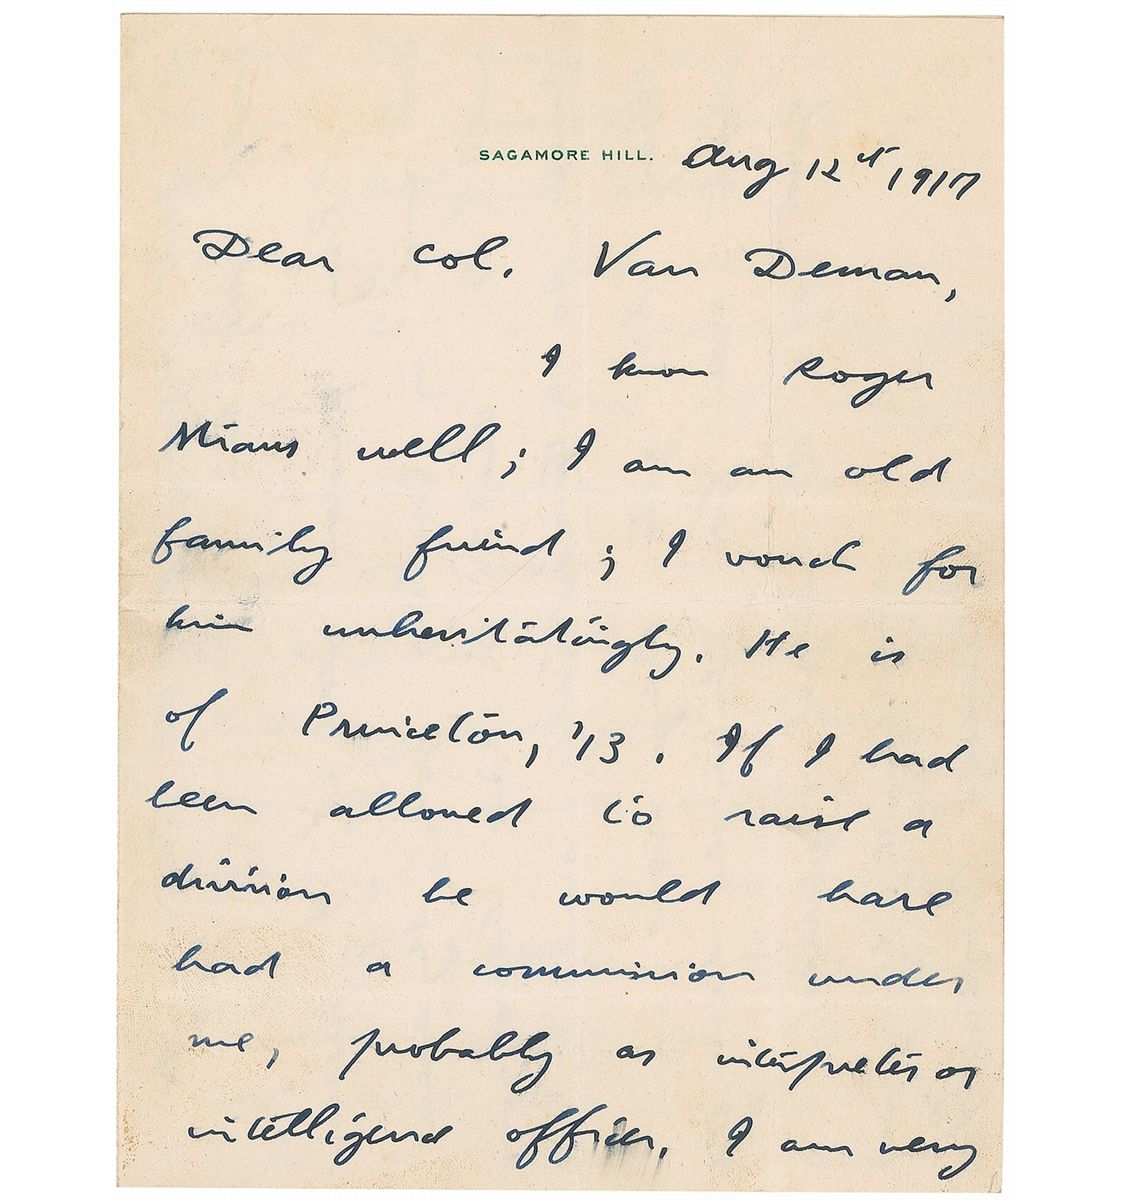 SAGAMORE HILL. Aug 12th 1917
Dear Col. Van Deman,
I know Roger
well; I am an old
family friend; I vouch for
him unhesitatingly. He is
of Princeton, '13. If I had
been allowed to raise a
division he would have
had a commission under
me, probably as interpreter or
intelligence officer. I am very